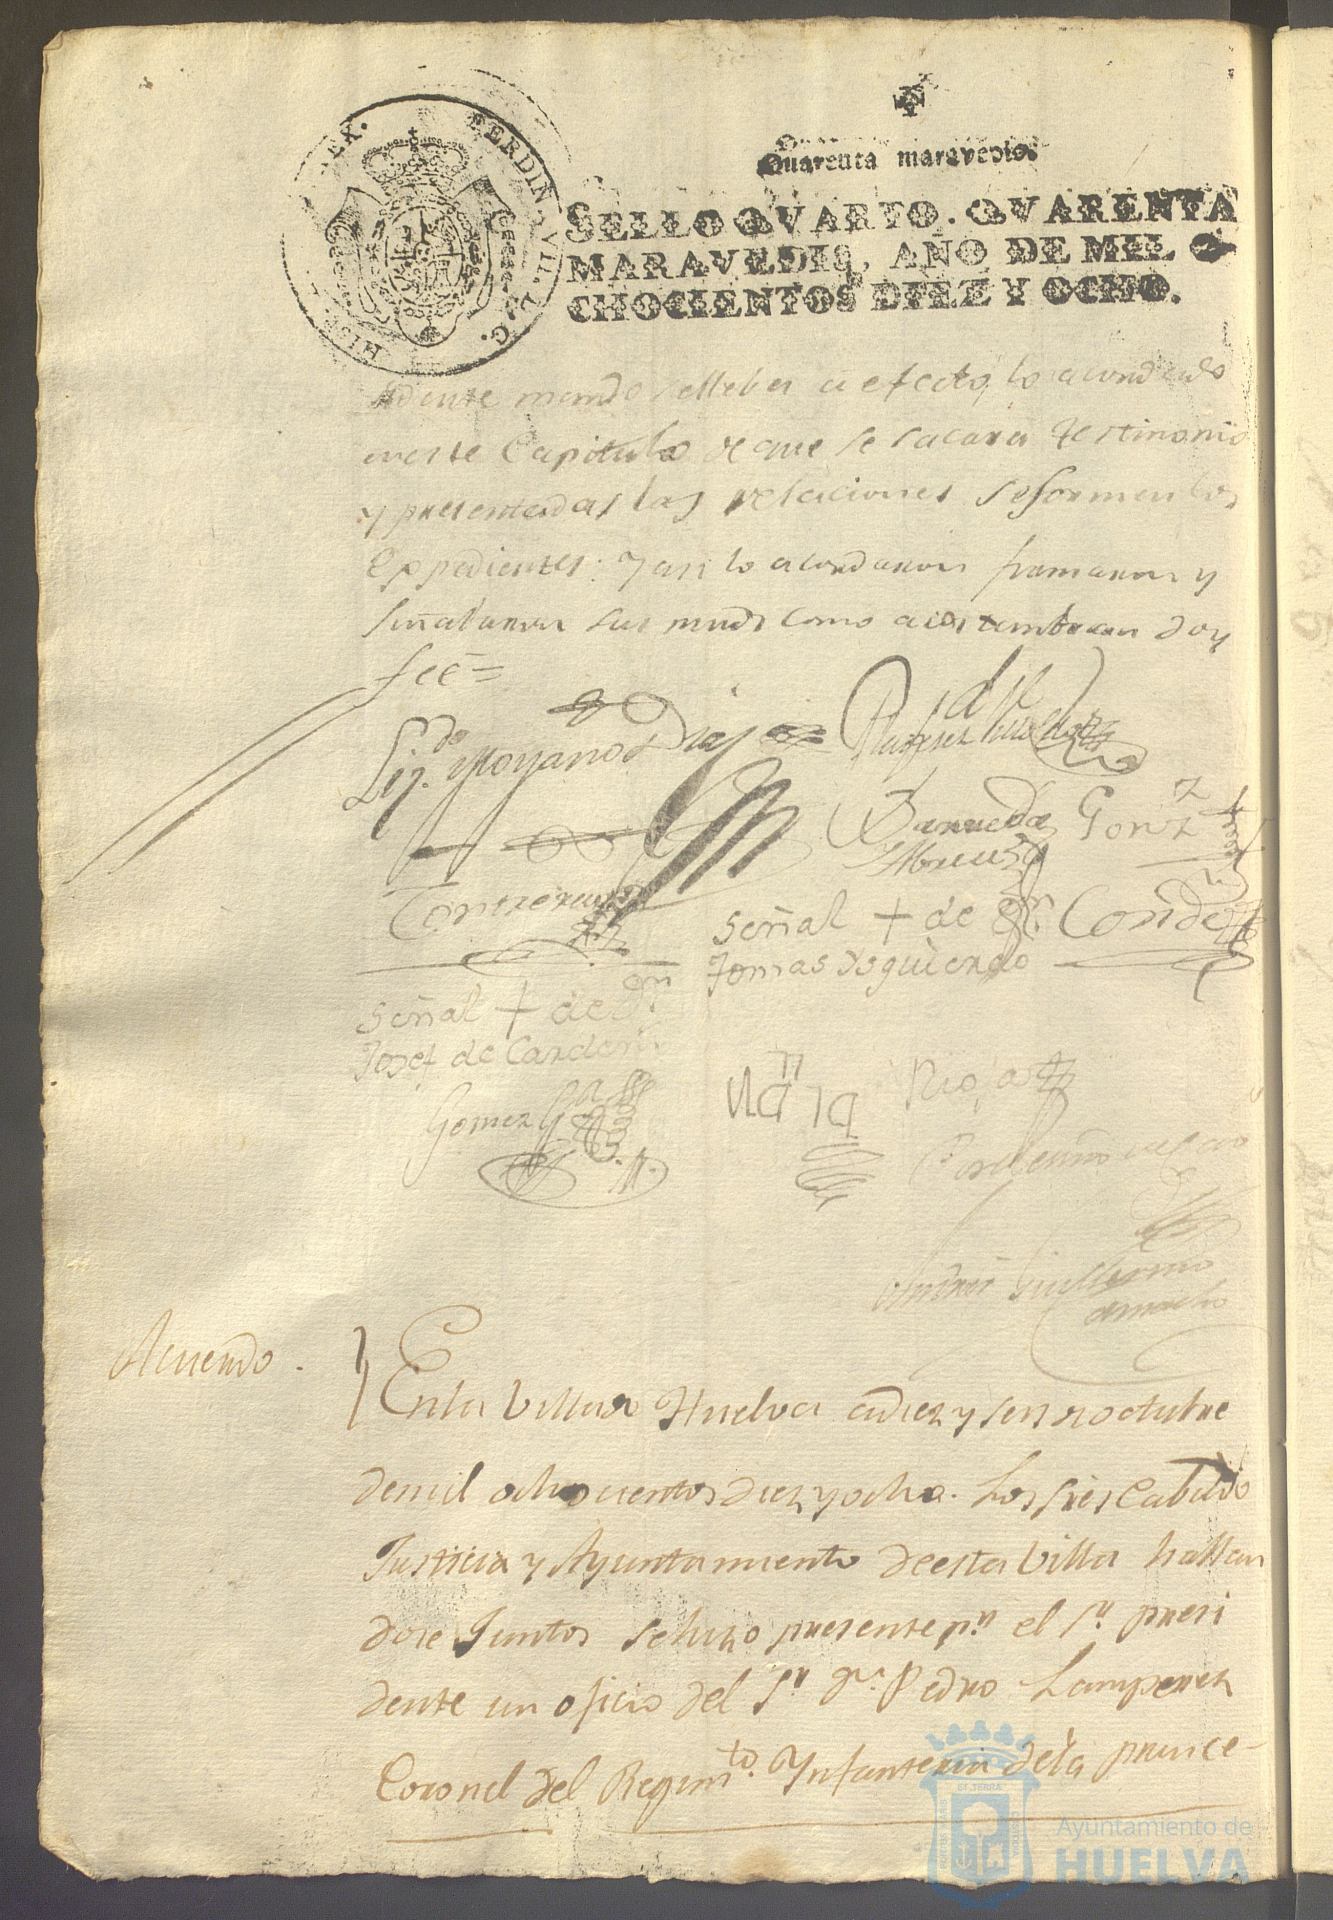 HIS REX. FERDIN. VII. D. G.
Quarenta maravedis.
SELLO QVARTO. QVARENTA
MARAVEDIS, AÑO DE MIL O
CHOCIENTOS DIEZ Y OCHO.
mando selleba a efecto, lo acordado
eneste Capitulo de que se sacara Testimonio
y presentadas las relaciones seformen los
Expedientes: Y asi lo acordaron firmaron y
señalaron sus mrds como acostumbran doy
fee=
Liz.do Moyano Diaz
Barreda Gonz
Contreras
Señal + de Dn. Conde
Tomas Ysquierdo
Señal + de Dn.
Josef de Carden
Gomez
Rioja
Acuerdo.
Enla Villa de Huelva adiez y seis de octubre
demil ochocientos diez y ocho. Los sres Cabildo
Justicia y Ayuntamiento deesta Villa hallan
dose Juntos se hizo presente pr. el Sr. presi
dente un oficio del Sr. Dn. Pedro Lamperez
Coronel del Regim.to Ynfanteria dela prince-
Ayuntamiento de
HUELVA